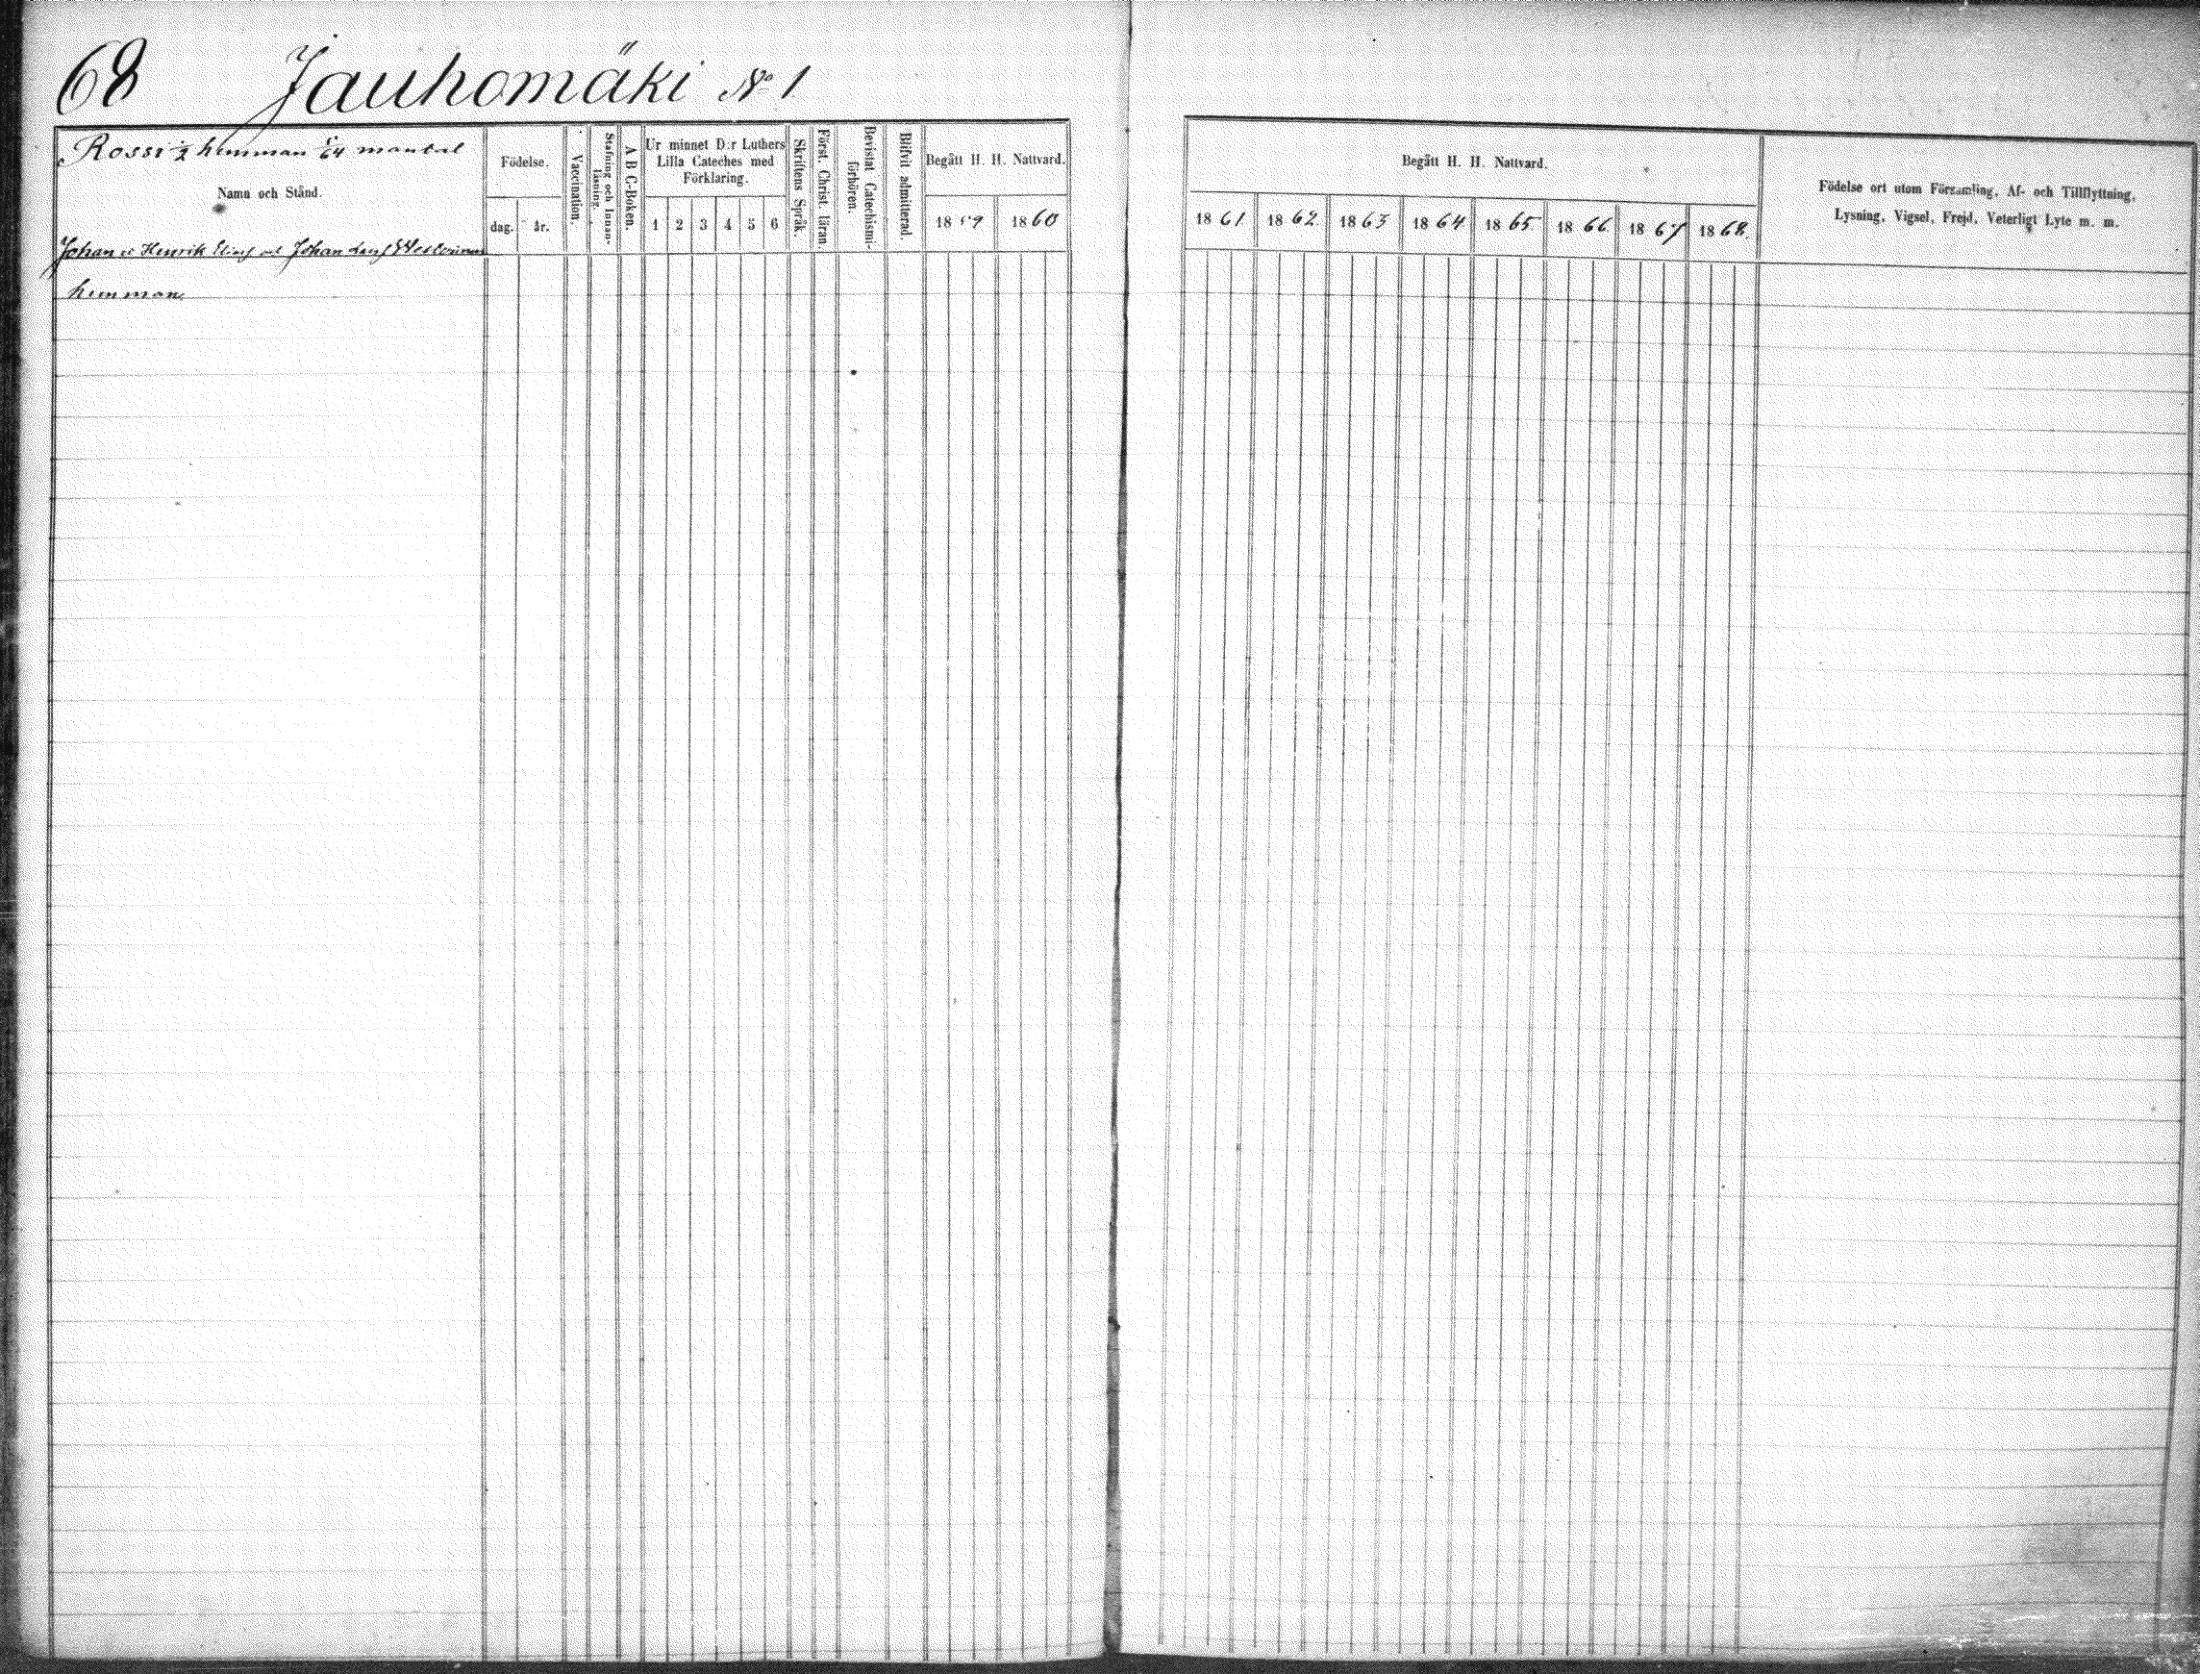 68 Jauhomäki No 1
Rossi 1/2 hemman 1/64 mantal
Namn och Stånd.
Födelse.
dag. år.
Vaccination.
Stafning och Innanläsning.
A B C-Boken.
Ur minnet D:r Luthers
Lilla Cateches med
Förklaring.
1 2 3 4 5 6
Skriftens Språk.
Först. Christ. läran.
Bevistat Catechismi-
förhören.
Blifvit admitterad.
Begått H. H. Nattvard.
1859 1860
Johan et Henrik och Johan
hemman
Begått H. H. Nattvard.
1861. 1862. 1863 1864 1865 1866. 1867 1868.
Födelse ort utom Församling, Af- och Tillflyttning,
Lysning, Vigsel, Frejd, Veterligt Lyte m. m.